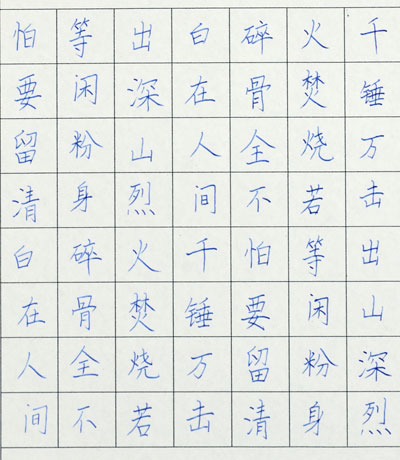 千锤万击出山深烈
火焚烧若等闲粉身
碎骨全不怕要留清
白在人间千锤万击
出深山烈火焚烧若
等闲粉身碎骨全不
怕要留清白在人间